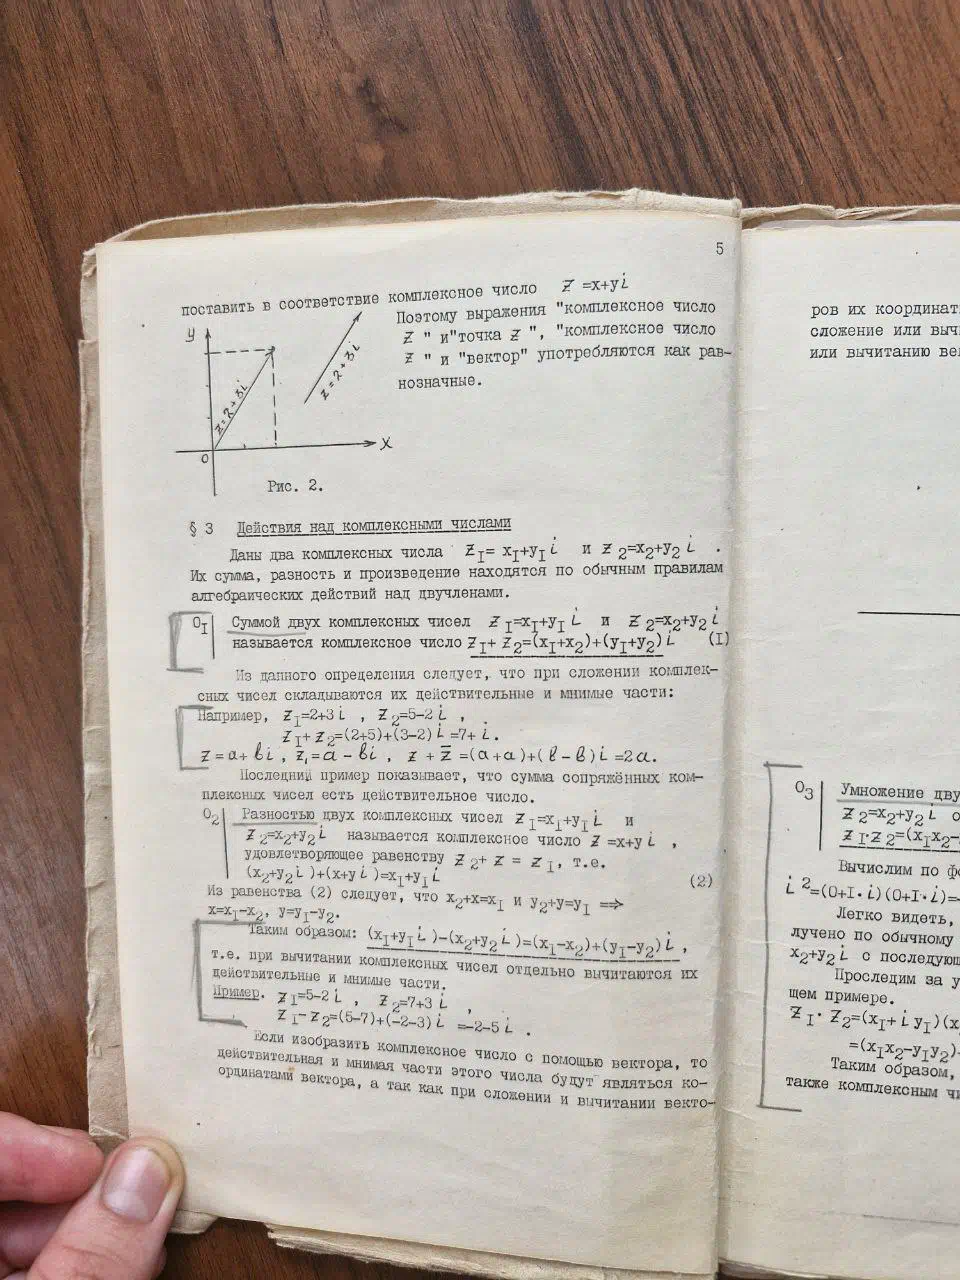 5
поставить в соответствие комплексное число Z =x+yi
Поэтому выражения "комплексное число
Z " и"точка Z ", "комплексное число
Z " и "вектор" употребляются как рав-
нозначные.
y
z=2+3i
z=2+3i
0
x
Рис. 2.
§ 3 Действия над комплексными числами
Даны два комплексных числа Z₁= x₁+y₁i и Z₂=x₂+y₂i .
Их сумма, разность и произведение находятся по обычным правилам
алгебраических действий над двучленами.
О₁ Суммой двух комплексных чисел Z₁=x₁+y₁i и Z₂=x₂+y₂i
называется комплексное число Z₁+ Z₂=(x₁+x₂)+(y₁+y₂)i (I)
Из данного определения следует, что при сложении комплек-
сных чисел складываются их действительные и мнимые части:
Например, Z₁=2+3i , Z₂=5-2i ,
Z₁+Z₂=(2+5)+(3-2)i =7+i.
Z=a+bi, Z̄,=a-bi, Z+Z̄=(a+a)+(b-b)i=2a.
Последний пример показывает, что сумма сопряжённых ком-
плексных чисел есть действительное число.
О₂ Разностью двух комплексных чисел Z₁=x₁+y₁i и
Z₂=x₂+y₂i называется комплексное число Z =x+yi ,
удовлетворяющее равенству Z₂+ Z = Z₁, т.е.
(x₂+y₂i)+(x+yi)=x₁+y₁i (2)
Из равенства (2) следует, что x₂+x=x₁ и y₂+y=y₁ =>
x=x₁-x₂, y=y₁-y₂.
Таким образом: (x₁+y₁i)-(x₂+y₂i)=(x₁-x₂)+(y₁-y₂)i ,
т.е. при вычитании комплексных чисел отдельно вычитаются их
действительные и мнимые части.
Пример. Z₁=5-2i , Z₂=7+3i ,
Z₁-Z₂=(5-7)+(-2-3)i =-2-5i .
Если изобразить комплексное число с помощью вектора, то
действительная и мнимая части этого числа будут являться ко-
ординатами вектора, а так как при сложении и вычитании векто-
ров их координат
сложение или вычи
или вычитанию век
О₃ Умножение дву
Z₂=x₂+y₂i
Z₁·Z₂=(x₁x₂-
Вычислим по фо
i²=(0+I·i)(0+I·i)=-
Легко видеть,
лучено по обычному
x₂+y₂i с последующ
Проследим за у
щем примере.
Z₁· Z₂=(x₁+iy₁)(x
=(x₁x₂-y₁y₂)
Таким образом,
также комплексным чи